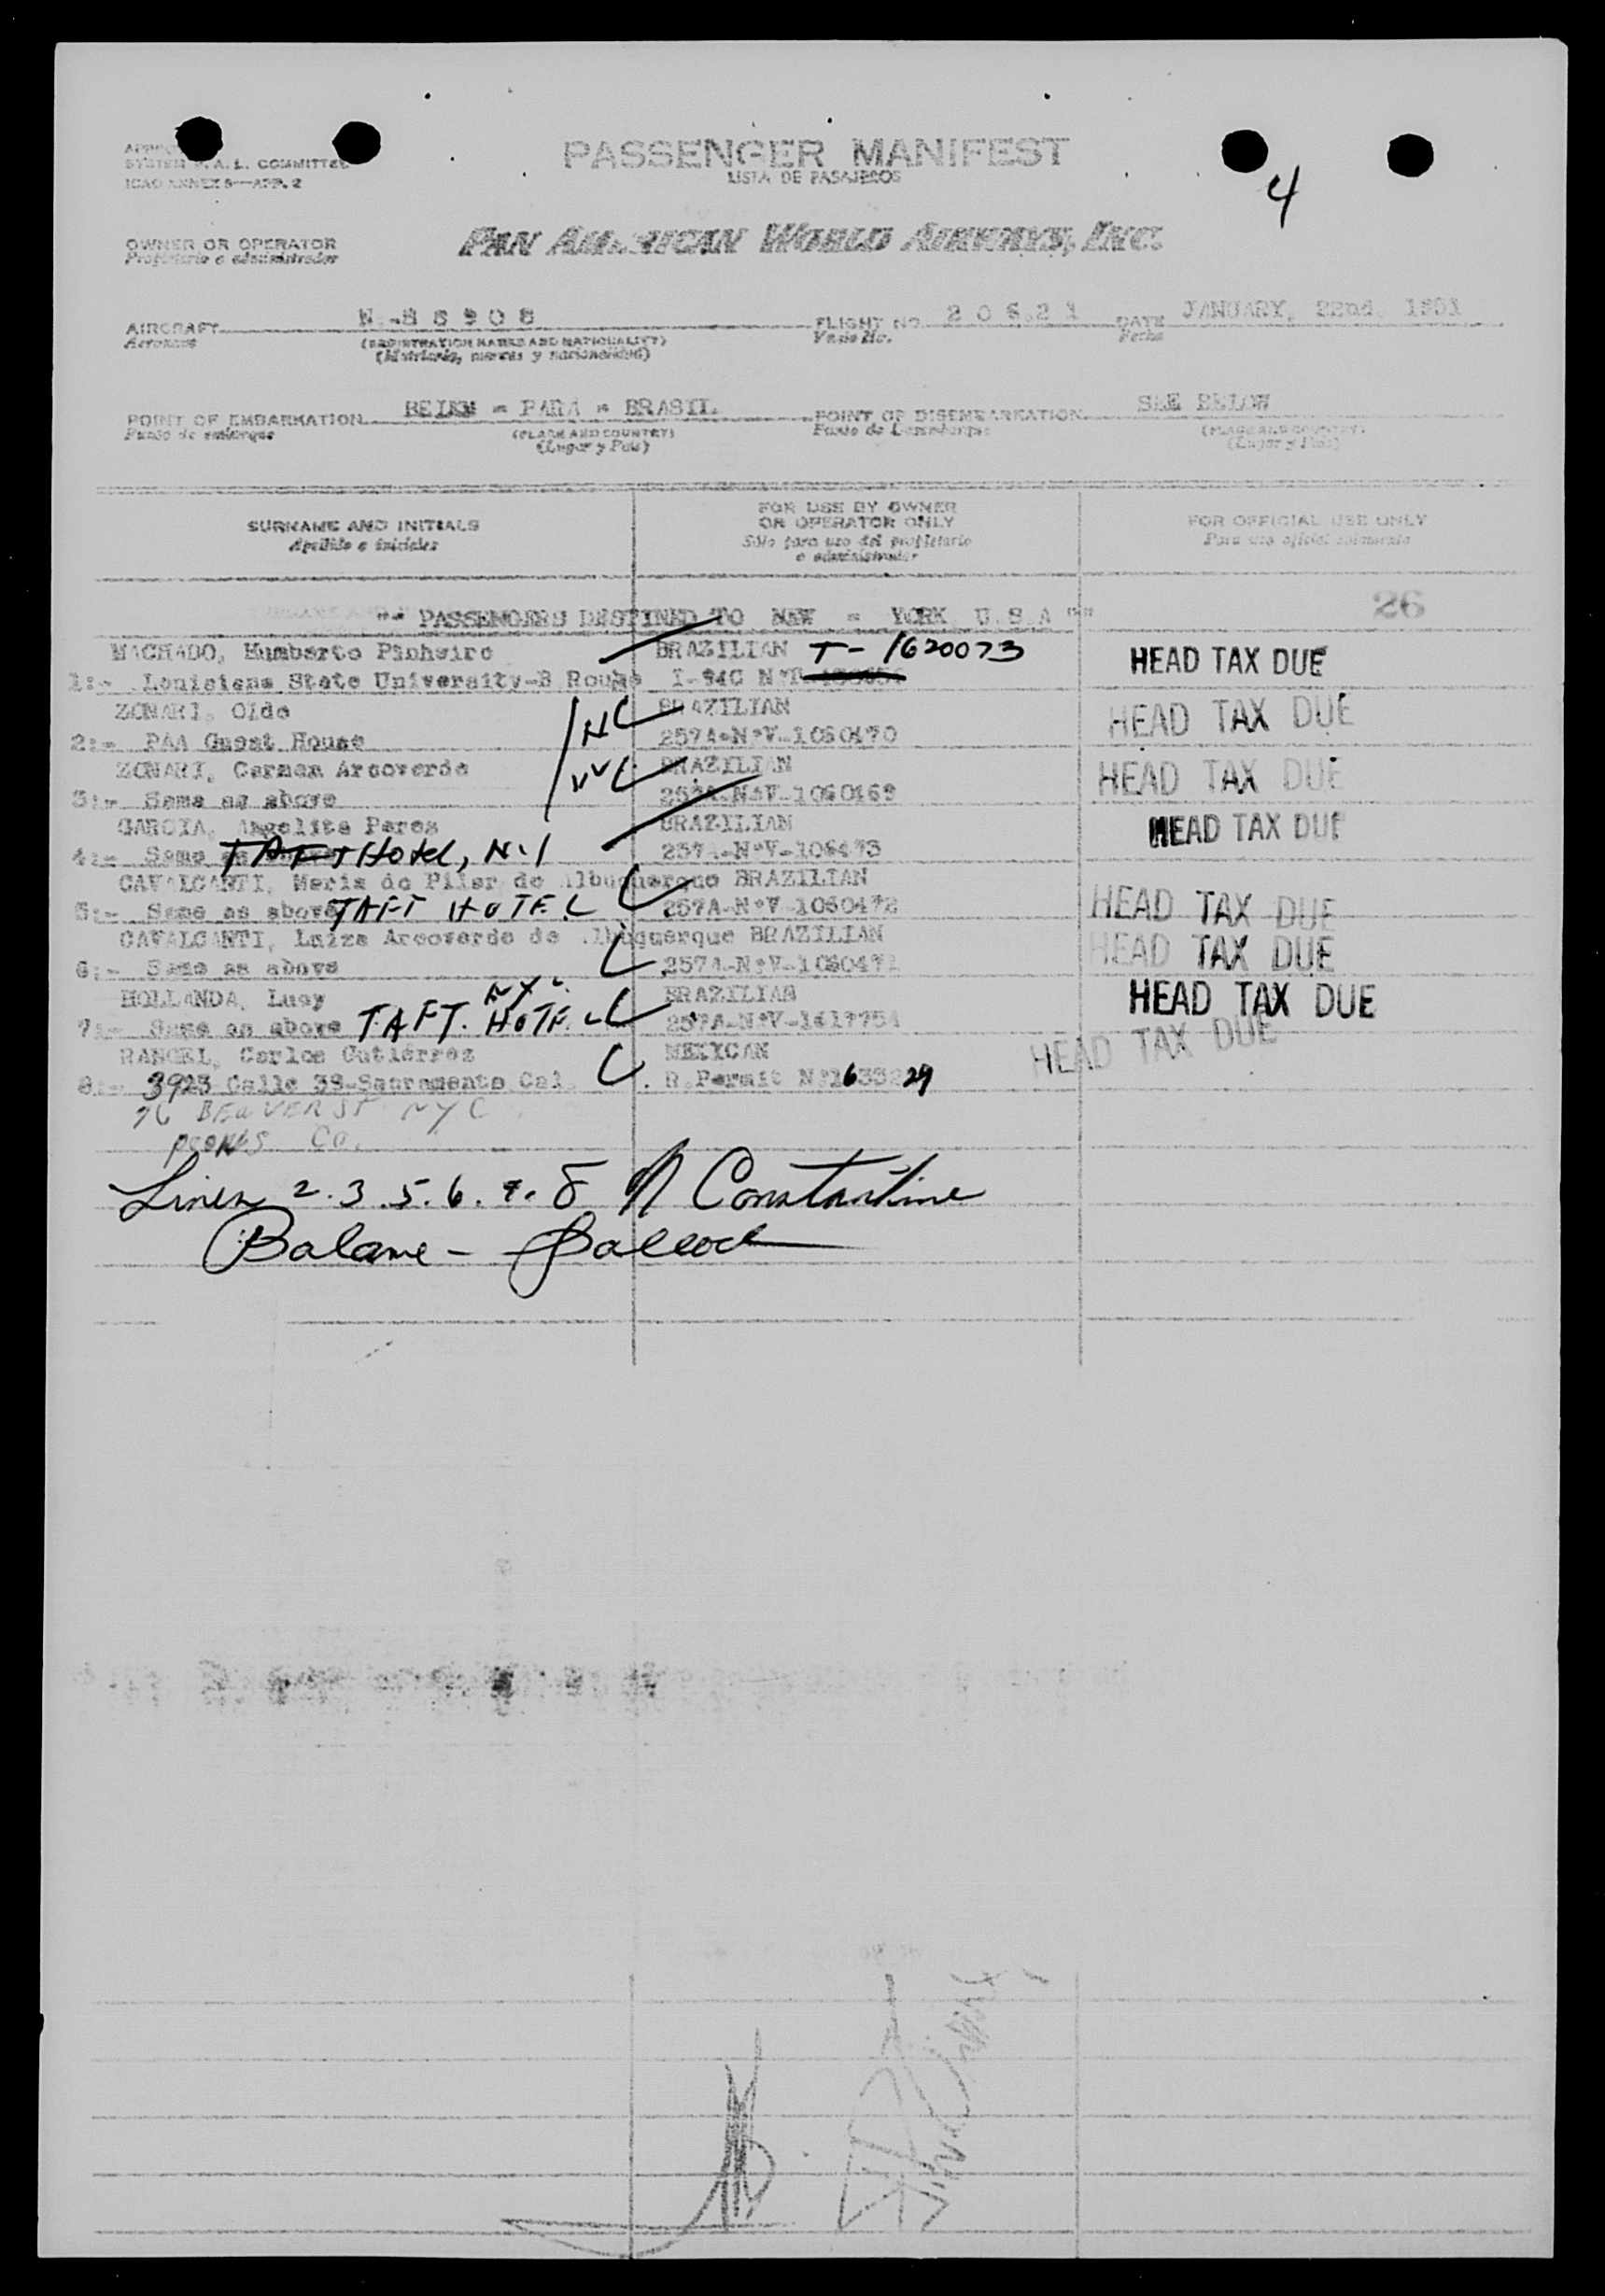 PASSENGER MANIFEST
LISTA DE PASAJEROS
SYSTEM F.A.L. COMMITTEE
ICAO ANNEX 9—APP. 2
4
OWNER OR OPERATOR
Propietario o administrador
PAN AMERICAN WORLD AIRWAYS, INC.
AIRCRAFT N.-88908 FLIGHT NO. 206.21 DATE JANUARY, 22nd. 1951
Aeronave (REGISTRATION MARKS AND NATIONALITY) Vuelo No. Fecha
(Matrícula, marcas y nacionalidad)
POINT OF EMBARKATION BELEM = PARA = BRASIL POINT OF DISEMBARKATION SEE BELOW
Punto de embarque (PLACE AND COUNTRY) Punto de Desembarque (PLACE AND COUNTRY)
(Lugar y País) (Lugar y País)
SURNAME AND INITIALS
Apellido e iniciales
FOR USE BY OWNER
OR OPERATOR ONLY
Sólo para uso del propietario
o administrador
FOR OFFICIAL USE ONLY
Para uso oficial solamente
"" PASSENGERS DESTINED TO NEW = YORK U.S.A "" 26
MACHADO, Humberto Pinheiro BRAZILIAN T-1620073 HEAD TAX DUE
1:- Louisiana State University-B Rouge I-94C NºT
ZONARI, Oldo NC BRAZILIAN HEAD TAX DUE
2:- PAA Guest House 257A-NºV-1060470
ZONARI, Carmen Arcoverde BRAZILIAN HEAD TAX DUE
3:- Same as above 257A-NºV-1060469
GARCIA, Angelita Peres BRAZILIAN HEAD TAX DUE
4:- Same as above TAFT Hotel, N.Y 257A-NºV-106473
CAVALCANTI, Maria do Pilar de Albuquerque BRAZILIAN HEAD TAX DUE
5:- Same as above TAFT HOTEL 257A-NºV-1060472
CAVALCANTI, Luiza Arcoverde de Albuquerque BRAZILIAN HEAD TAX DUE
6:- Same as above 257A-NºV-1060471
HOLLANDA, Lucy NYC. BRAZILIAN HEAD TAX DUE
7:- Same as above TAFT. HOTEL 257A-NºV-1617754
RANGEL, Carlos Gutiérrez MEXICAN HEAD TAX DUE
8:- 3923 Calle 39-Sacramento Cal. R.Permit Nº1633229
76 BEAVER ST NYC
Co.
Lines 2.3.5.6.7.8 N Constantine
Balance -